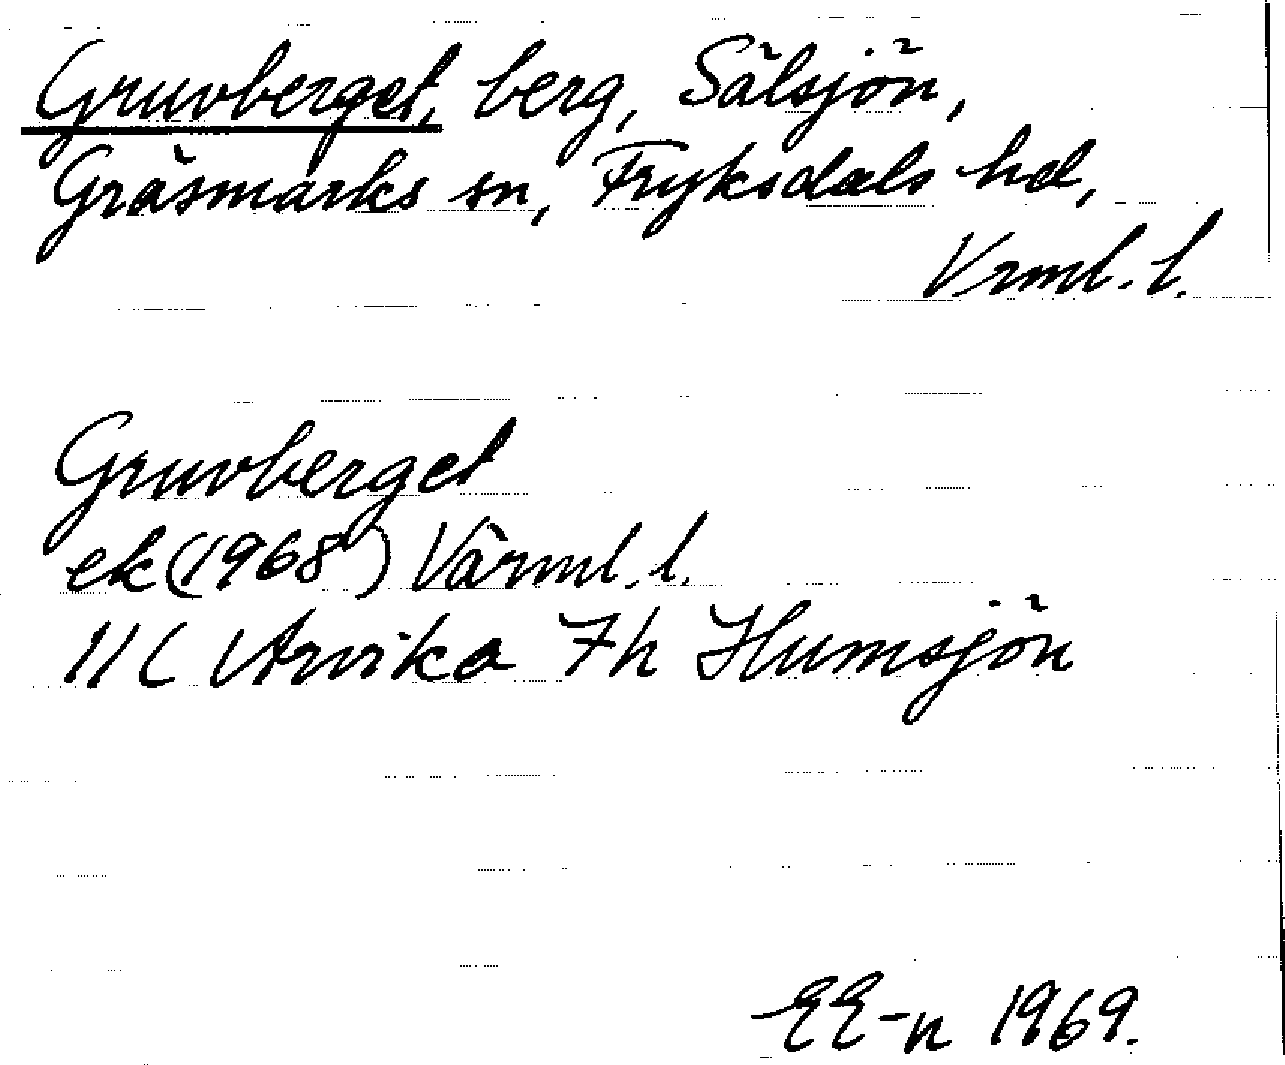 Gruvberget, berg, Sälsjön,
Gräsmarks sn, Fryksdals hd,
Vrml. l.
Gruvberget
ek (1968) Värml. l.
11C Arvika 7h Humsjön
EE-n 1969.